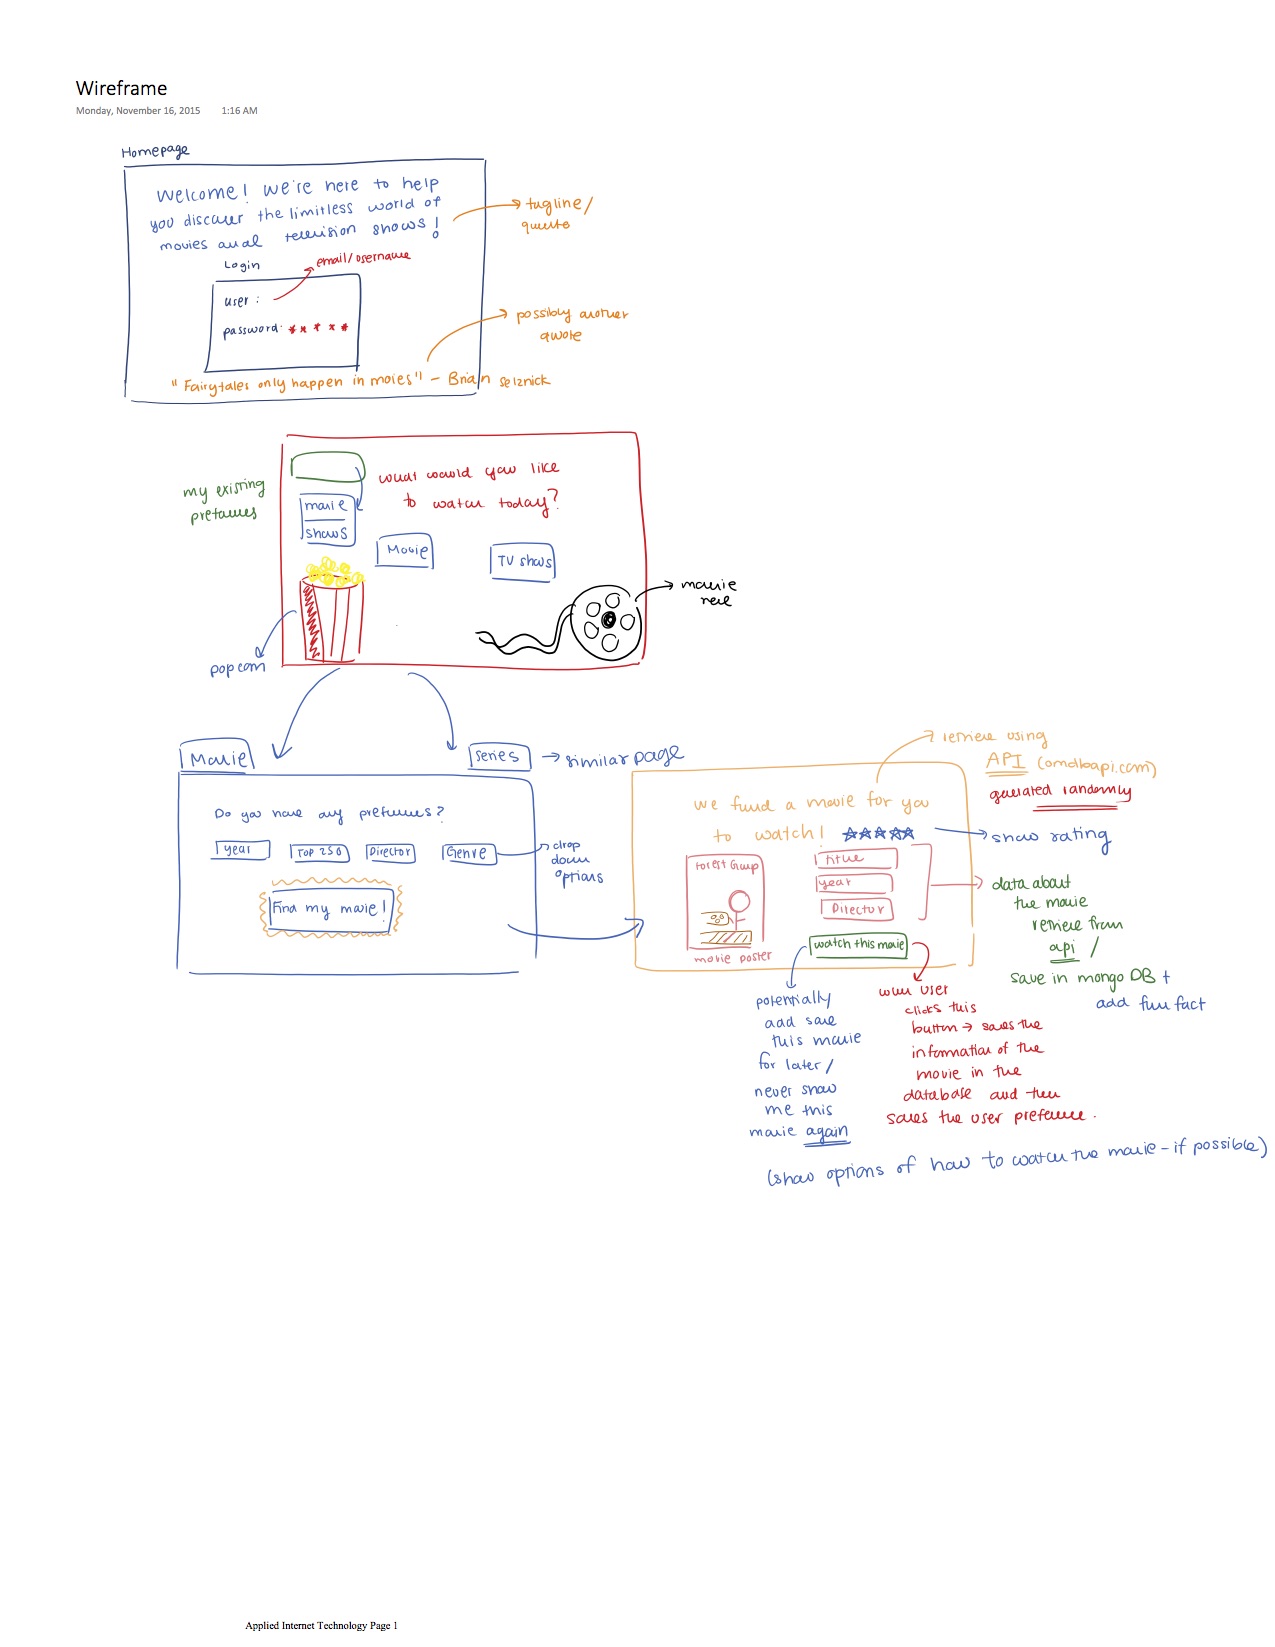 Wireframe
Monday, November 16, 2015 1:16 AM
Homepage
Welcome! We're here to help
you discover the limitless world of
movies and television shows!
tagline/
quote
Login
email/username
user :
password: * * * * *
possibly another
quote
"Fairytales only happen in moies" - Brian Selznick
my existing
prefernces
what would you like
to watch today?
movie
shows
Movie
TV shows
movie
reel
popcorn
Movie
series
similar page
Do you have any prefernces?
year
Top 250
Director
Genre
drop
down
options
Find my movie!
retrieve using
API (omdbapi.com)
generated randomly
we found a movie for you
to watch!
show rating
Forest Gump
title
year
Director
movie poster
watch this movie
data about
the movie
retrieve from
api /
save in mongo DB +
add fun fact
potentially
add save
this movie
for later/
never show
me this
movie again
when user
clicks this
button → saves the
information of the
movie in the
database and then
saves the user prefernce.
(show options of how to watch the movie - if possible)
Applied Internet Technology Page 1